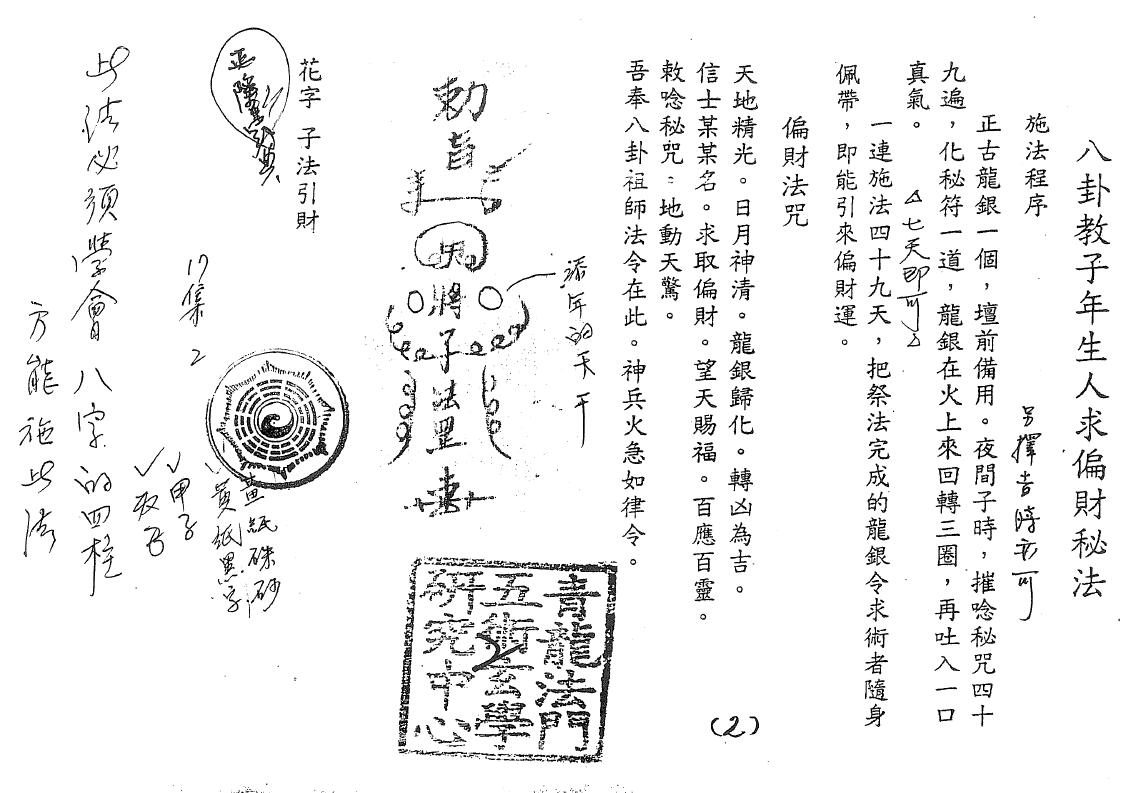 八卦教子年生人求偏財秘法
施法程序
另擇吉時亦可
正古龍銀一個，壇前備用。夜間子時，摧唸秘咒四十
九遍，化秘符一道，龍銀在火上來回轉三圈，再吐入一口
真氣。
△七天即可△
一連施法四十九天，把祭法完成的龍銀令求術者隨身
佩帶，即能引來偏財運。
偏財法咒
天地精光。日月神清。龍銀歸化。轉凶為吉。
信士某某名。求取偏財。望天賜福。百應百靈。
敕唸秘咒：地動天驚。
吾奉八卦祖師法令在此。神兵火急如律令。
(2)
添年的天干
勅旨
將子法罡
青龍法門
五術玄學
研究中心
花字 子法引財
17集
2
黃紙硃砂
黃紙黑字
甲子
此法必須學會八字的四柱
方能施此法